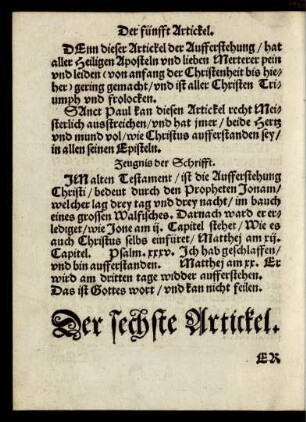 Der fünfft Artickel.
DEnn dieser Artickel der Aufferstehung / hat
aller Heiligen Aposteln vnd lieben Merterer pein
vnd leiden (von anfang der Christenheit bis hie-
her) gering gemacht / vnd ist aller Christen Tri
umph vnd frolocken.
SAnct Paul kan diesen Artickel recht Mei-
sterlich ausstreichen / vnd hat jmer / beide Hertz
vnd mund vol / wie Christus aufferstanden sey /
in allen seinen Episteln.
Zeugnis der Schrifft.
IM alten Testament / ist die Aufferstehung
Christi / bedeut durch den Propheten Jonam /
welcher lag drey tag vnd drey nacht / im bauch
eines grossen Walfisches. Darnach ward er er-
lediget / wie Jone am ij. Capitel stehet / Wie es
auch Christus selbs einfüret / Matthej am xij.
Capitel. Psalm. xxxv. Ich hab geschlaffen /
vnd bin aufferstanden. Matthej am xx. Er
wird am dritten tage widder aufferstehen.
Das ist Gottes wort / vnd kan nicht feilen.
Der sechste Artickel.
ER